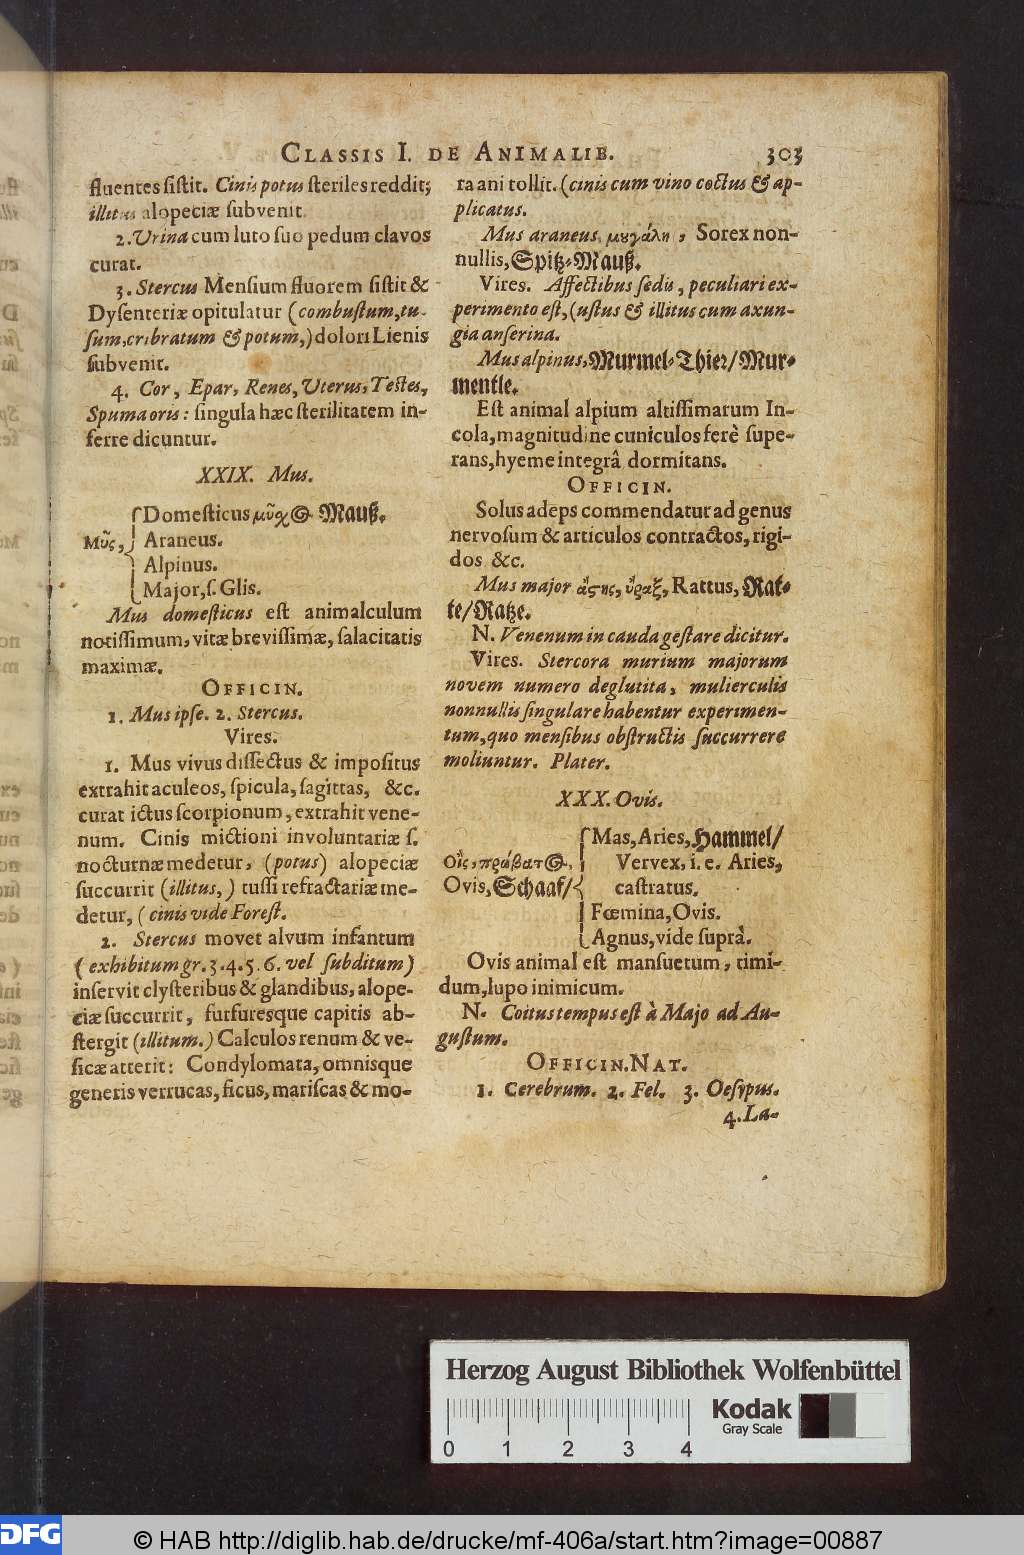 CLASSIS I. DE ANIMALIB. 303
fluentes ſiſtit. Cinis potus ſteriles reddit;
illitus alopeciæ ſubvenit.
2. Urina cum luto ſuo pedum clavos
curat.
3. Stercus Menſium fluorem ſiſtit &
Dyſenteriæ opitulatur (combuſtum, tu-
ſum, cribratum & potum,) dolori Lienis
ſubvenit.
4. Cor, Epar, Renes, Uterus, Teſtes,
Spuma oris: ſingula hæc ſterilitatem in-
ferre dicuntur.
XXIX. Mus.
Μῦς,
Domeſticus μῦς Mauß.
Araneus.
Alpinus.
Major, ſ. Glis.
Mus domeſticus eſt animalculum
notiſſimum, vitæ breviſſimæ, ſalacitatis
maximæ.
OFFICIN.
1. Mus ipſe. 2. Stercus.
Vires.
1. Mus vivus diſſectus & impoſitus
extrahit aculeos, ſpicula, ſagittas, &c.
curat ictus ſcorpionum, extrahit vene-
num. Cinis mictioni involuntariæ ſ.
nocturnæ medetur, (potus) alopeciæ
ſuccurrit (illitus,) tuſſi refractariæ me-
detur, (cinis vide Foreſt.
2. Stercus movet alvum infantum
(exhibitum gr. 3. 4. 5. 6. vel ſubditum)
inſervit clyſteribus & glandibus, alope-
ciæ ſuccurrit, furfuresque capitis ab-
ſtergit (illitum.) Calculos renum & ve-
ſicæ atterit: Condylomata, omnisque
generis verrucas, ficus, mariſcas & mo-
ra ani tollit. (cinis cum vino coctus & ap-
plicatus.
Mus araneus, μυγάλη, Sorex non-
nullis, Spitz-Mauß.
Vires. Affectibus ſedis, peculiari ex-
perimento eſt, (uſtus & illitus cum axun-
gia anſerina.
Mus alpinus, Murmel-Thier/ Mur-
mentle.
Eſt animal alpium altiſſimarum In-
cola, magnitudine cuniculos ferè ſupe-
rans, hyeme integrâ dormitans.
OFFICIN.
Solus adeps commendatur ad genus
nervoſum & articulos contractos, rigi-
dos &c.
Mus major ὕραξ, Rattus, Rat-
te/ Ratze.
N. Venenum in cauda geſtare dicitur.
Vires. Stercora murium majorum
novem numero deglutita, mulierculis
nonnullis ſingulare habentur experimen-
tum, quo menſibus obſtructis ſuccurrere
moliuntur. Plater.
XXX. Ovis.
Οἶς, πρόβατον,
Ovis, Schaaf/
Mas, Aries, Hammel/
Vervex, i. e. Aries,
caſtratus.
Fœmina, Ovis.
Agnus, vide ſuprà.
Ovis animal eſt manſuetum, timi-
dum, lupo inimicum.
N. Coitus tempus eſt à Majo ad Au-
guſtum.
OFFICIN. NAT.
1. Cerebrum. 2. Fel. 3. Oeſypus.
4. La-
Herzog August Bibliothek Wolfenbüttel
0 1 2 3 4
Kodak
Gray Scale
DFG
© HAB http://diglib.hab.de/drucke/mf-406a/start.htm?image=00887